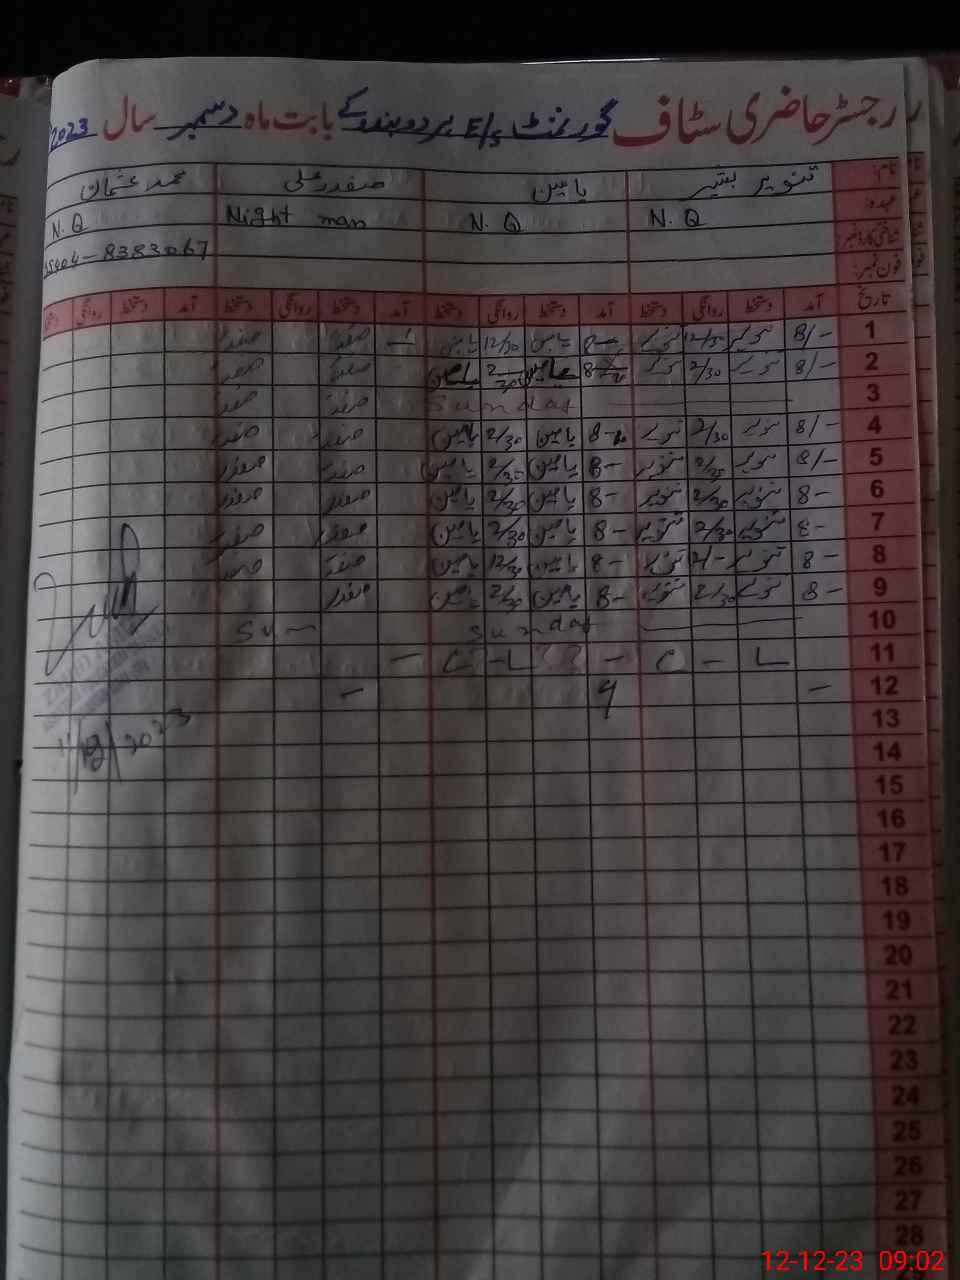 رجسٹر حاضری سٹاف گورنمنٹ E/S ہردو ہندو کے بابت ماہ دسمبر سال 2023
نام: تنویر بشیر یامین صفدر علی محمد عثمان
عہدہ: N.Q N.Q Night man N.Q
شناختی کارڈ نمبر: 35404-8383067
فون نمبر:
تاریخ آمد دستخط روانگی دستخط آمد دستخط روانگی دستخط آمد دستخط روانگی دستخط آمد دستخط روانگی
1 8/- تنویر 12/30 تنویر 8- یامین 12/30 یامین صفدر صفدر
2 8/- تنویر 2/30 تنویر 8 یامین 2/30 یامین صفدر صفدر
3 Sunday صفدر صفدر
4 8/- تنویر 2/30 تنویر 8- یامین 2/30 یامین صفدر صفدر
5 8/- تنویر 2/30 تنویر 8- یامین 2/30 یامین صفدر صفدر
6 8- تنویر 2/30 تنویر 8- یامین 2/30 یامین صفدر صفدر
7 8- تنویر 2/30 تنویر 8- یامین 2/30 یامین صفدر صفدر
8 8- تنویر 2/- تنویر 8- یامین 12/30 یامین صفدر صفدر
9 8- تنویر 2/30 تنویر 8- یامین 2/30 یامین صفدر
10 Sunday Sun
11 - C - L - C - L
12 - 9 -
13
14
15
16
17
18
19
20
21
22
23
24
25
26
27
28
12-12-23 09:02